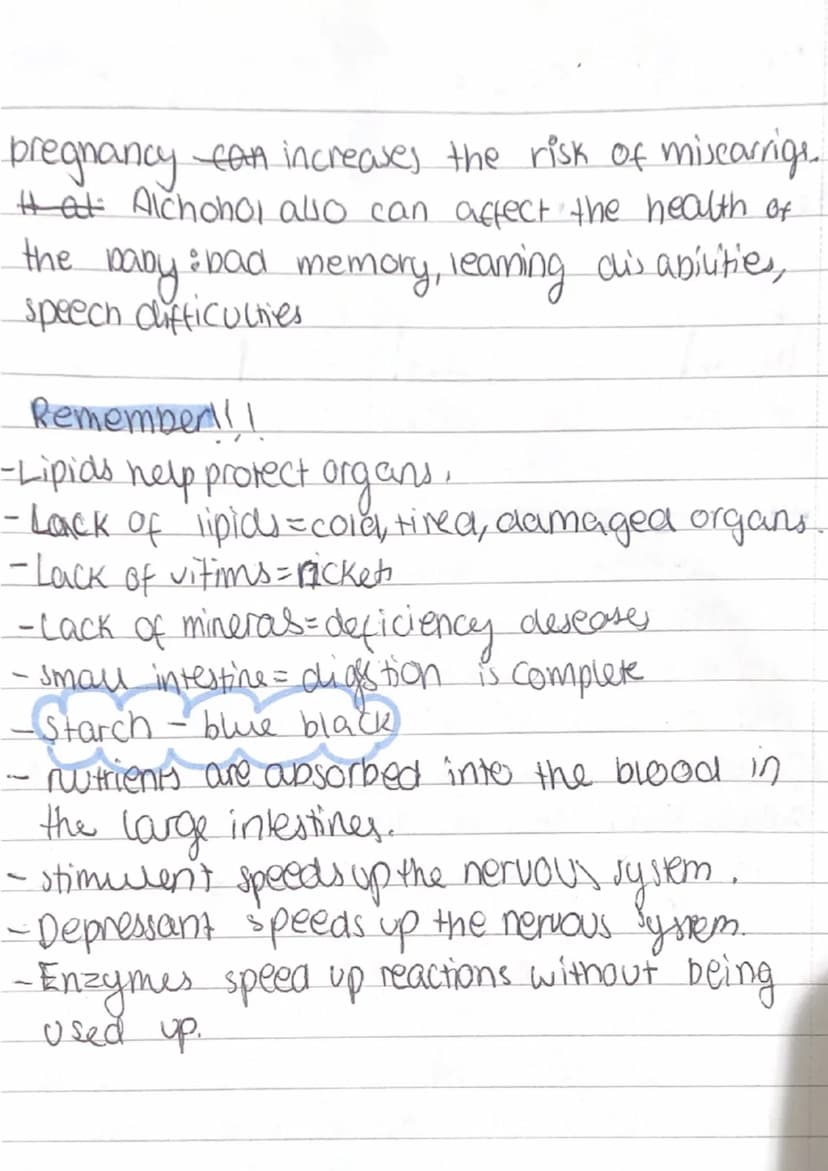 pregnancy can increases the risk of miscarrige.
It at Alchohol also can affect the health of
the baby: bad memory, learning dis abilities,
speech difficulties
Remember!!!
-Lipids help protect organs.
- Lack of lipids=cold, tired, damaged organs.
- Lack of vitims=rickets
- Lack of mineras=deficiency deseases
- small intestine= digstion is complete
- Starch - blue black
- nutrients are absorbed into the blood in
the large intestines.
- stimulent speeds up the nervous system.
- Depressant speeds up the nervous system.
- Enzymes speed up reactions without being
used up.